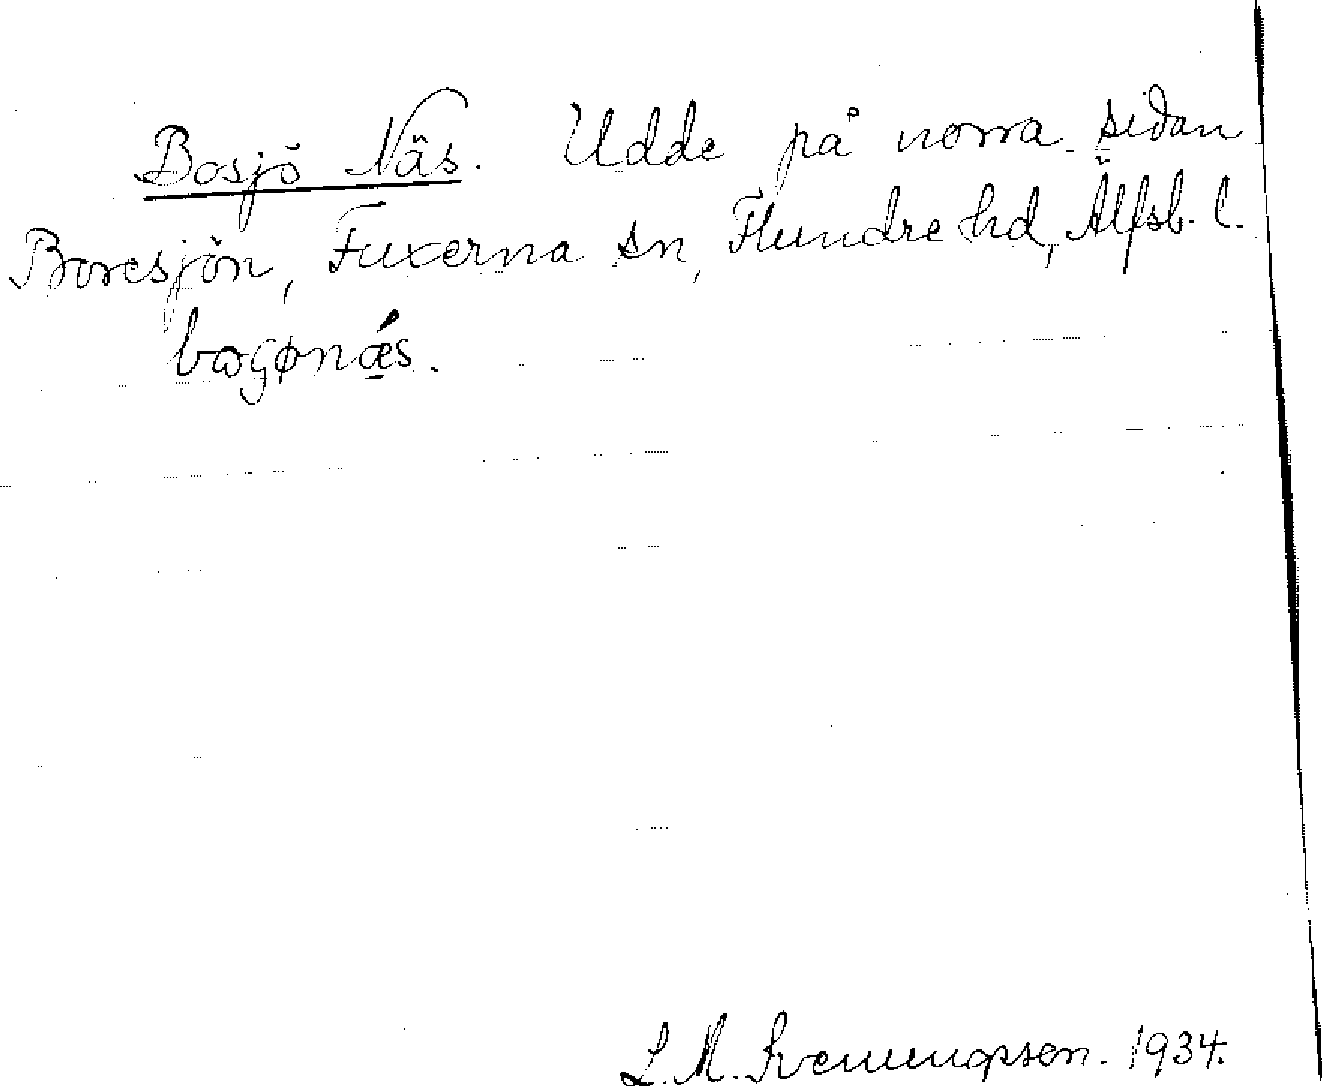 Bosjö Näs. Udde på norra sidan
Boresjön, Fuxerna sn, Flundre hd, Älfsb. l.
L. M. Svenungsson. 1934.